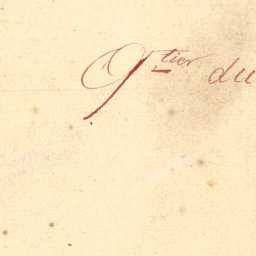 9.tier du